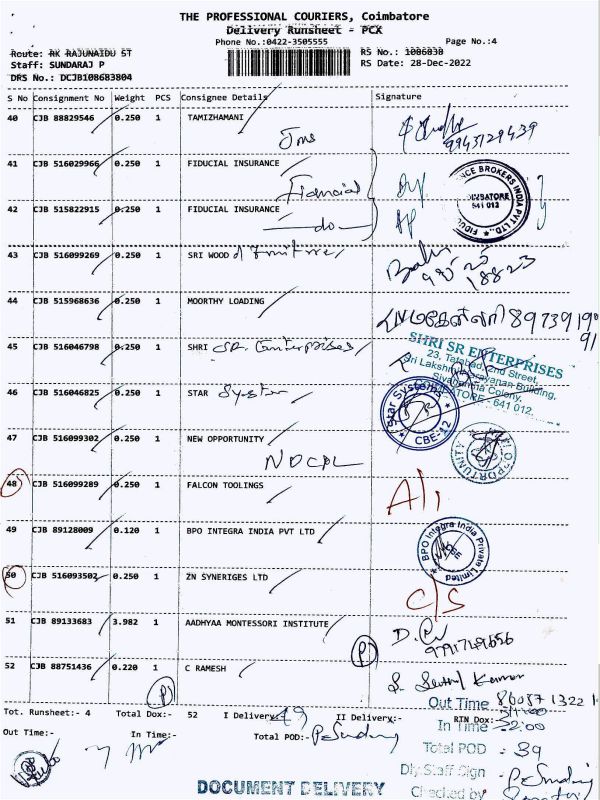 THE PROFESSIONAL COURIERS, Coimbatore
Delivery Runsheet - PCX
Phone No.:0422-3505555 Page No.:4
Route: RK RAJUNAIDU ST RS No.: 1086838
Staff: SUNDARAJ P RS Date: 28-Dec-2022
DRS No.: DCJB108683804
S No Consignment No Weight PCS Consignee Details Signature
40 CJB 88829546 0.250 1 TAMIZHAMANI
9943129439
41 CJB 516029966 0.250 1 FIDUCIAL INSURANCE
Financial
42 CJB 515822915 0.250 1 FIDUCIAL INSURANCE
do
43 CJB 516099269 0.250 1 SRI WOOD
18823
44 CJB 515968636 0.250 1 MOORTHY LOADING
45 CJB 516046798 0.250 1 SHRI SR Enterprises
SHRI SR ENTERPRISES
23, Tatabad, 2nd Street,
Sri Lakshmi Narayanan Building,
Sivananda Colony,
COIMBATORE - 641 012.
46 CJB 516046825 0.250 1 STAR System
Star Systems
CBE-12
47 CJB 516099302 0.250 1 NEW OPPORTUNITY
NOCPL
48 CJB 516099289 0.250 1 FALCON TOOLINGS
49 CJB 89128009 0.120 1 BPO INTEGRA INDIA PVT LTD
BPO Integra India Private Limited
50 CJB 516093502 0.250 1 ZN SYNERIGES LTD
C/S
51 CJB 89133683 3.982 1 AADHYAA MONTESSORI INSTITUTE
P
52 CJB 88751436 0.220 1 C RAMESH
P
Tot. Runsheet:- 4 Total Dox:- 52 I Delivery:- 49 II Delivery:- RTN Dox:-
Out Time:- In Time:- Total POD:-
Out Time
In Time
Total POD - 39
Dly Staff Sign
Checked by
DOCUMENT DELIVERY